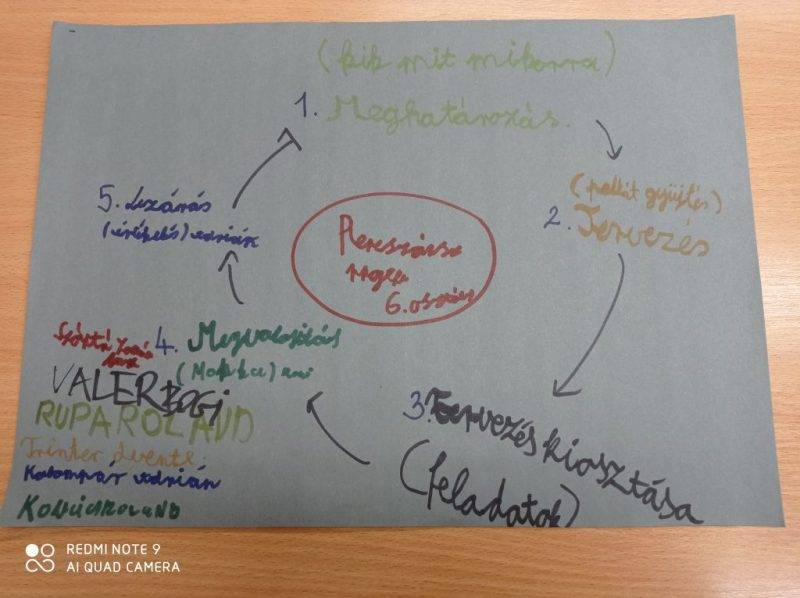 (kik mit mikorra)
1. Meghatározás.
(plakát gyüjtés)
2. Tervezés
3. Tervezés kiosztása
(feladatok)
4. Megvalosítás
(Makka)
5. Lezárás
(értékelés) Adrián
6. osztály
VALER BOGI
RUPA ROLAND
Trinter Levente
Kolompár Adrián
REDMI NOTE 9
AI QUAD CAMERA